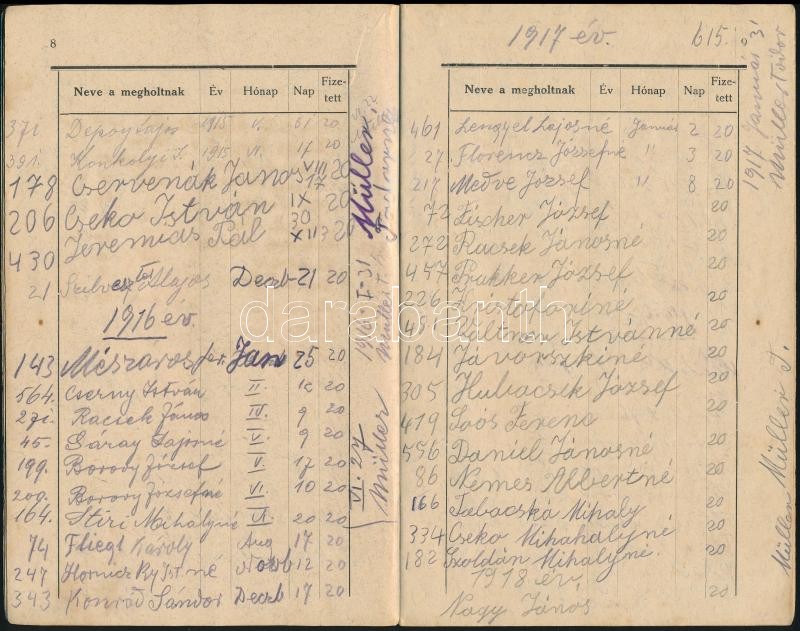 8
Neve a megholtnak Év Hónap Nap Fizetett
371 Depoy Lajos 1915 V. 61 20
391. Konkolyi I. 1915 VI. 17 20
178 Cservenák János VIII 17 20
206 Cseko István IX 30 20
430 Jeremiás Pál XII 3 20
21 Szilveszter Alajos Deczb 21 20
1916 év.
143 Mészaros Jan 25 20
564. Cserny István II. 12 20
271. Racsek János IV. 9 20
45. Gáray Lajosné V. 9 20
199. Borovy József V. 17 20
200. Borovy Józsefné VI. 10 20
164. Stiri Mihályné VI. 20 20
74 Fliegl Károly Aug 17 20
247 Hornicz Istné Novb 12 20
343 Konrád Sándor Deczb 17 20
1916 I-31 Müller
VI. 27 Müller
1917 év. 615. 9
Neve a megholtnak Év Hónap Nap Fizetett
461 Lengyel Lajosné Január 2 20
27. Florencz Józsefné " 3 20
217 Medve József " 8 20
72 Fischer József 20
272 Racsek Jánosné 20
457 Prukker József 20
226 Kristofoziné 20
451 Valtner Istvánné 20
184 Jávorszkiné 20
305 Hubacsek József 20
419 Soós Ferenc 20
556 Daniel Jánosné 20
86 Nemes Albertné 20
166 Tabacská Mihaly 20
334 Cseko Mihahályné 20
182 Szoldán Mihalyné 20
1918 év.
Nagy János 20
1917 Január 31
Müller Tódor
Müller Müller T.
darabanth